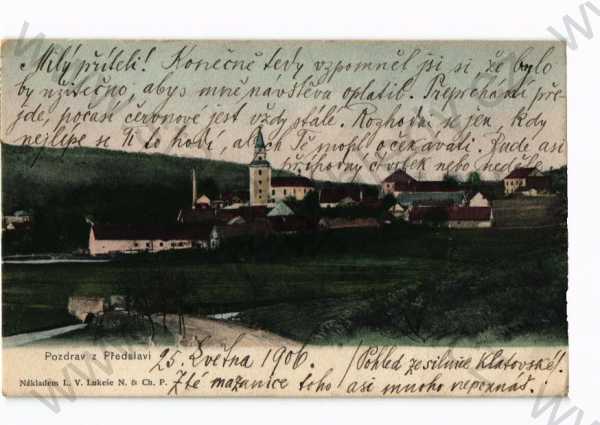 Milý příteli! Konečně tedy vzpomněl jsi si, že bylo
by užitečno, abys mně návštěva oplatil. Přeprchávání pře-
jde, počasí červnové jest vždy stálé. Rozhodni se jen, kdy
nejlépe se Ti to hodí, abych Tě mohl očekávati. Bude asi
příhodný čtvrtek nebo neděle.
Pozdrav z Předslavi 25. Května 1906. (Pohled ze silnice Klatovské!
Nákladem L. V. Lukeše N. & Ch. P. Z té mazanice toho asi mnoho nepoznáš.)